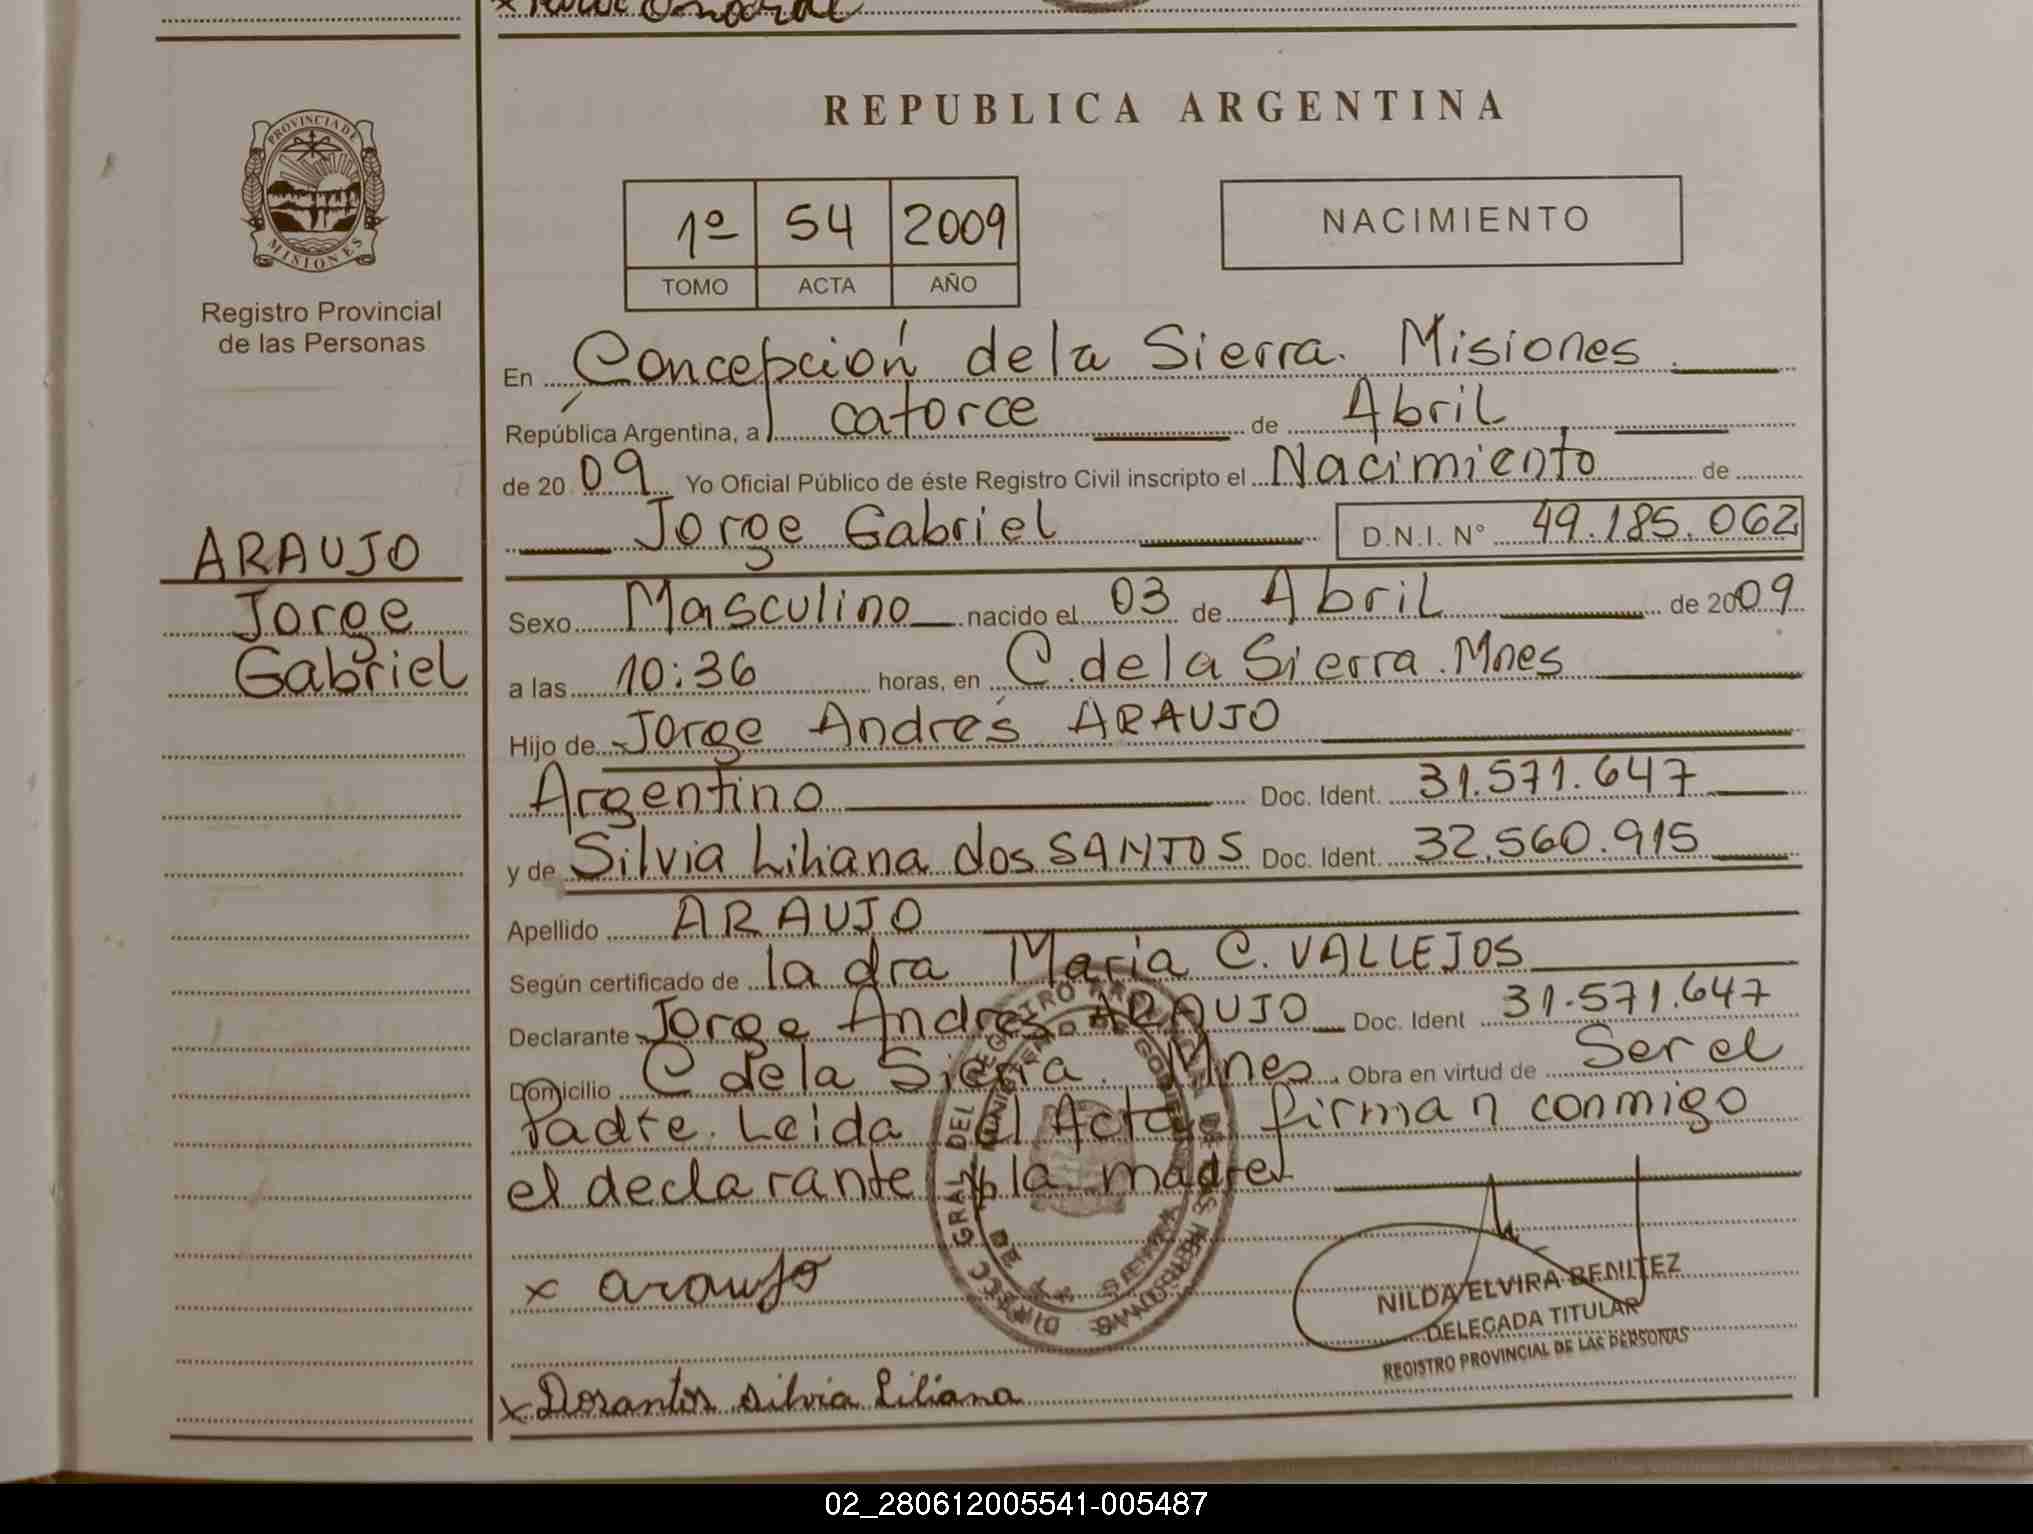 PROVINCIA DE
MISIONES
Registro Provincial
de las Personas
ARAUJO
Jorge
Gabriel
REPUBLICA ARGENTINA
1º 54 2009
TOMO ACTA AÑO
NACIMIENTO
En Concepción de la Sierra. Misiones
República Argentina, a catorce de Abril
de 2009 Yo Oficial Público de éste Registro Civil inscripto el Nacimiento de
Jorge Gabriel D.N.I. N° 49.185.062
Sexo Masculino nacido el 03 de Abril de 2009
a las 10:36 horas, en C. de la Sierra. Mnes
Hijo de Jorge Andrés ARAUJO
Argentino Doc. Ident. 31.571.647
y de Silvia Liliana dos SANTOS Doc. Ident. 32.560.915
Apellido ARAUJO
Según certificado de la dra Maria C. VALLEJOS
Declarante Jorge Andres ARAUJO Doc. Ident 31.571.647
Domicilio C de la Sierra. Mnes. Obra en virtud de Ser el
Padre. Leida el Acta, firman conmigo
el declarante y la madre
x araujo
NILDA ELVIRA BENITEZ
DELEGADA TITULAR
REGISTRO PROVINCIAL DE LAS PERSONAS
x Dosantos silvia Liliana
02_280612005541-005487